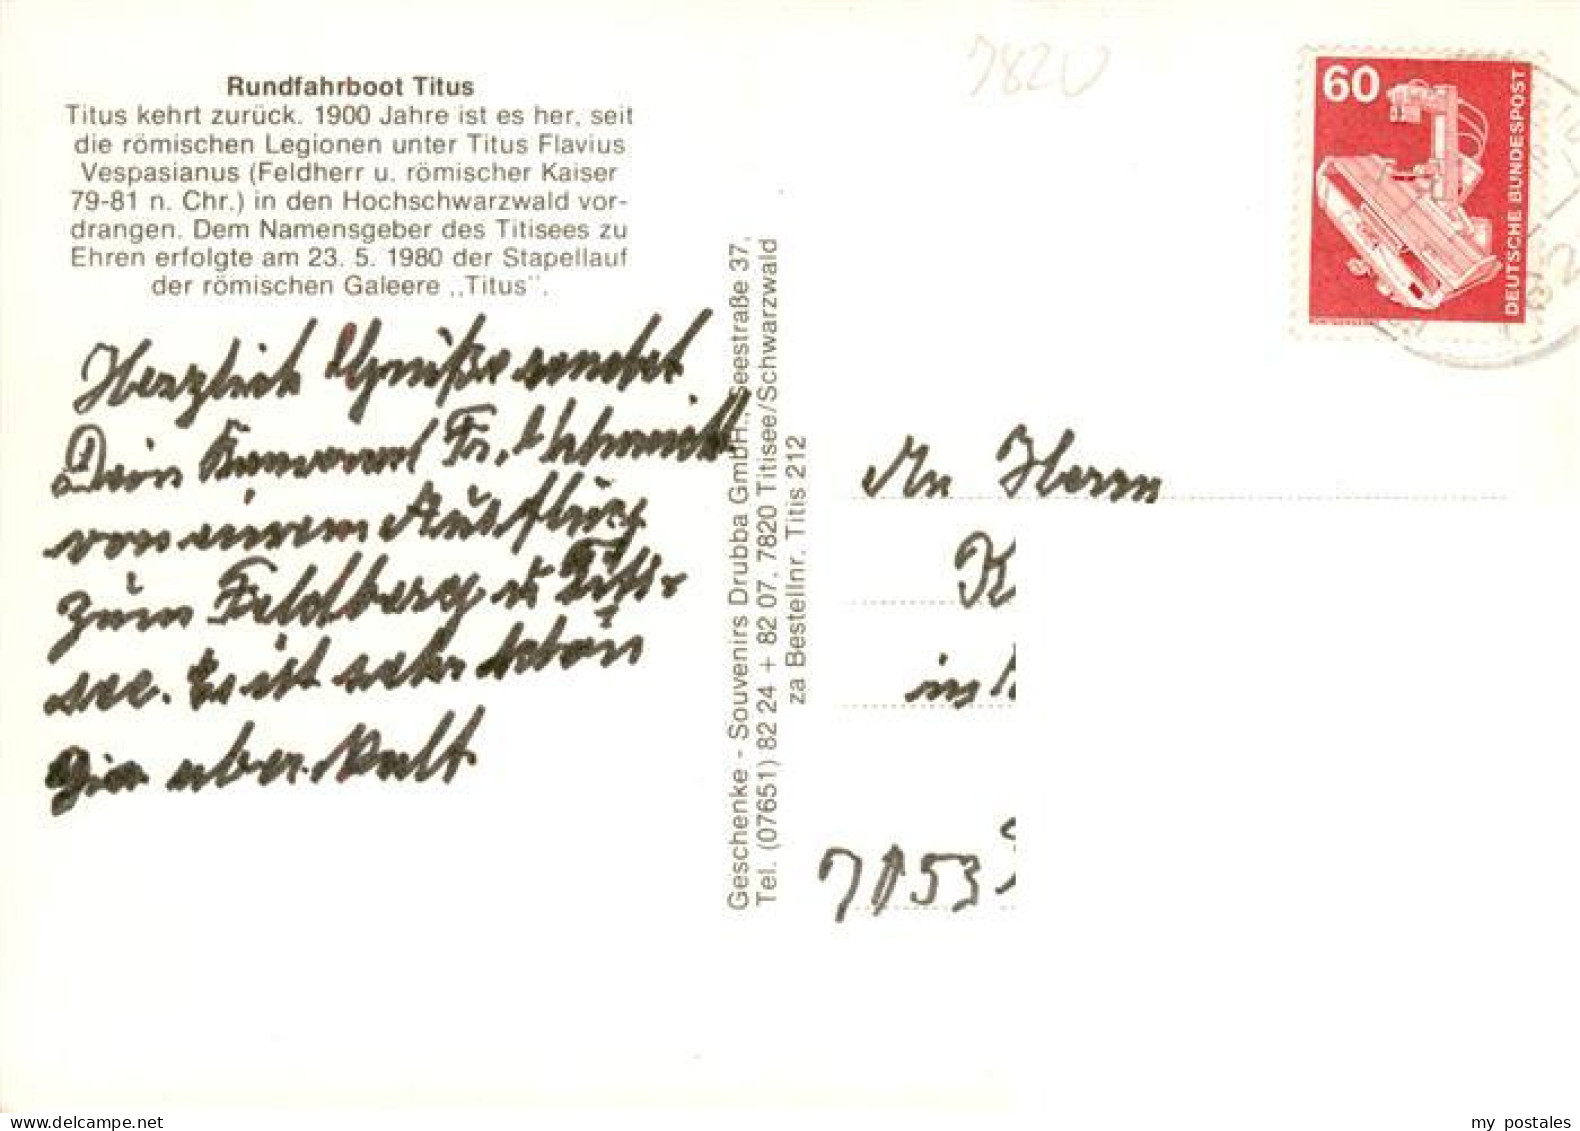 Rundfahrboot Titus
Titus kehrt zurück. 1900 Jahre ist es her, seit
die römischen Legionen unter Titus Flavius
Vespasianus (Feldherr u. römischer Kaiser
79-81 n. Chr.) in den Hochschwarzwald vor-
drangen. Dem Namensgeber des Titisees zu
Ehren erfolgte am 23. 5. 1980 der Stapellauf
der römischen Galeere „Titus".
Herzlich Grüße sendet
Dein Kamerad Fr. Schmidt
von einem Ausflug
zum Feldberg u Titi-
see. Es ist sehr schön
hier aber kalt
Geschenke - Souvenirs Drubba GmbH., Seestraße 37,
Tel. (07651) 82 24 + 82 07, 7820 Titisee/Schwarzwald
za Bestellnr. Titis 212
7820
60
DEUTSCHE BUNDESPOST
An Herrn
K
in
7153
my postales